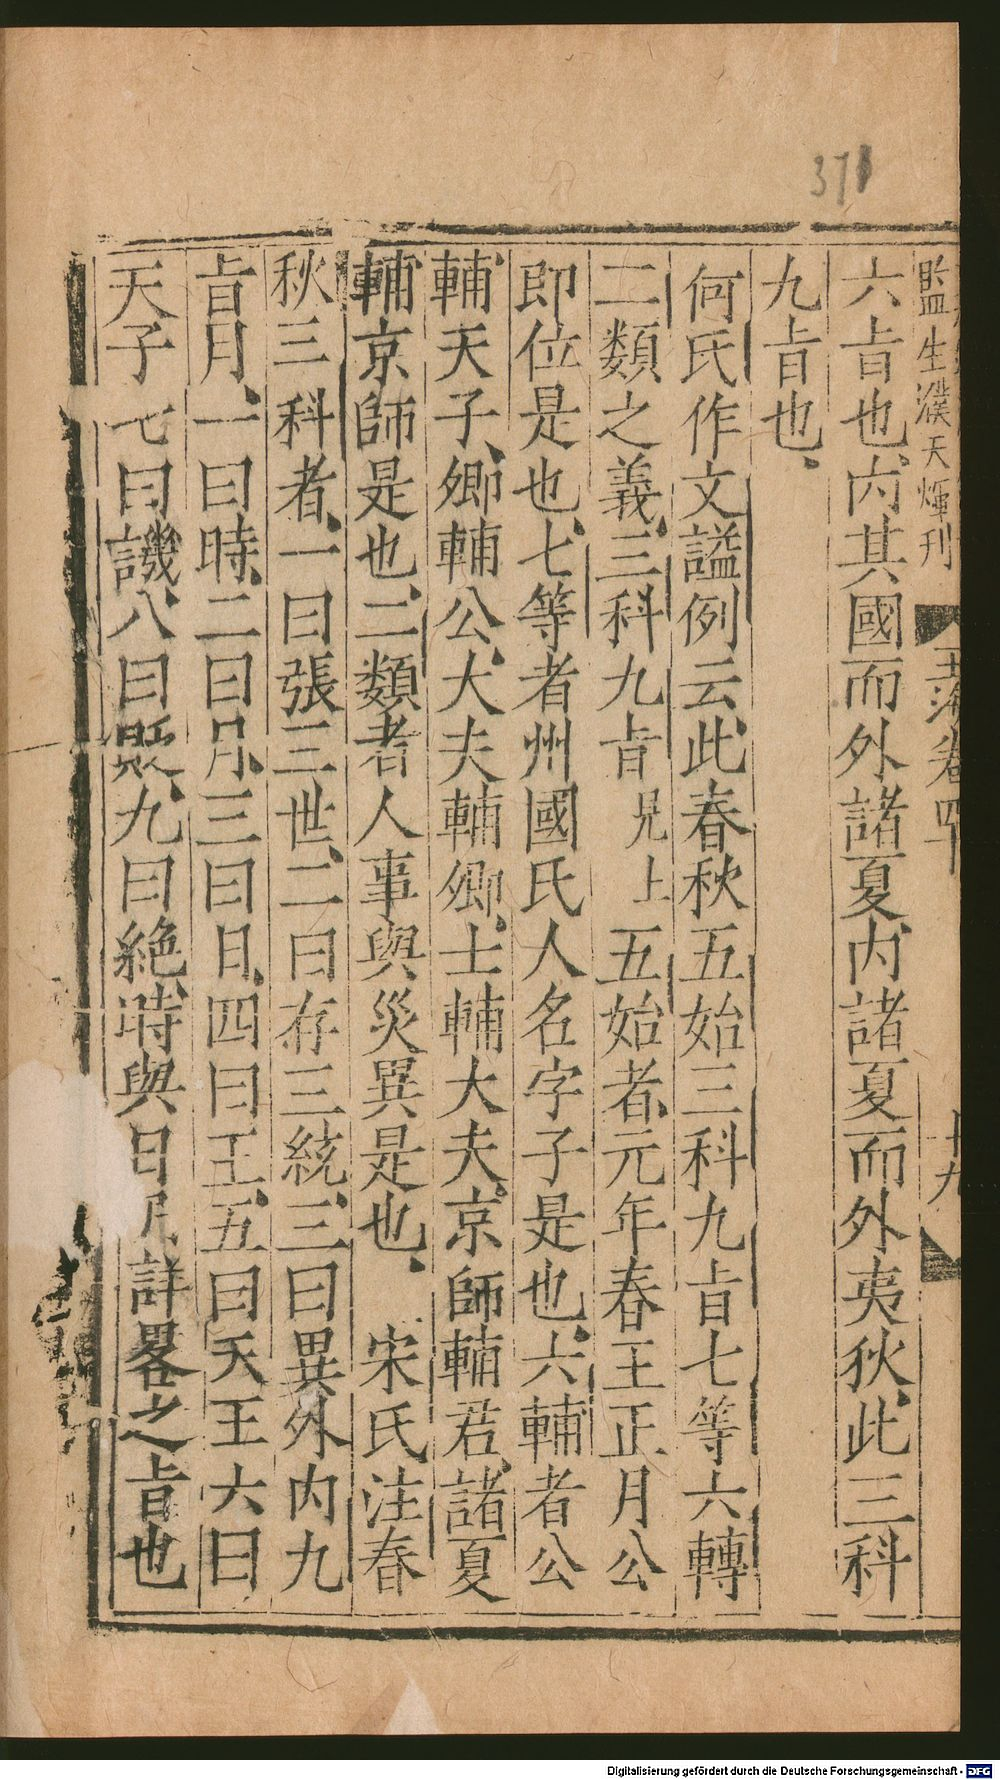 371
監生濮天煇刊
玉海卷四十
十九
六旨也、内其國而外諸夏、内諸夏而外夷狄、此三科
九旨也、
何氏作文謚例云、此春秋五始三科九旨七等六轉
二類之義、三科九旨 見上 五始者、元年春王正月公
即位是也、七等者州國氏人名字子是也、六輔者公
輔天子、卿輔公、大夫輔卿、士輔大夫、京師輔君、諸夏
輔京師是也、二類者人事與災異是也、 宋氏注春
秋三科者、一曰張三世、二曰存三統、三曰異外内九
旨月、一曰時、二曰月、三曰日、四曰王、五曰天王六曰
天子七曰譏、八曰貶、九曰絶、時與日月詳畧之旨也
Digitalisierung gefördert durch die Deutsche Forschungsgemeinschaft - DFG